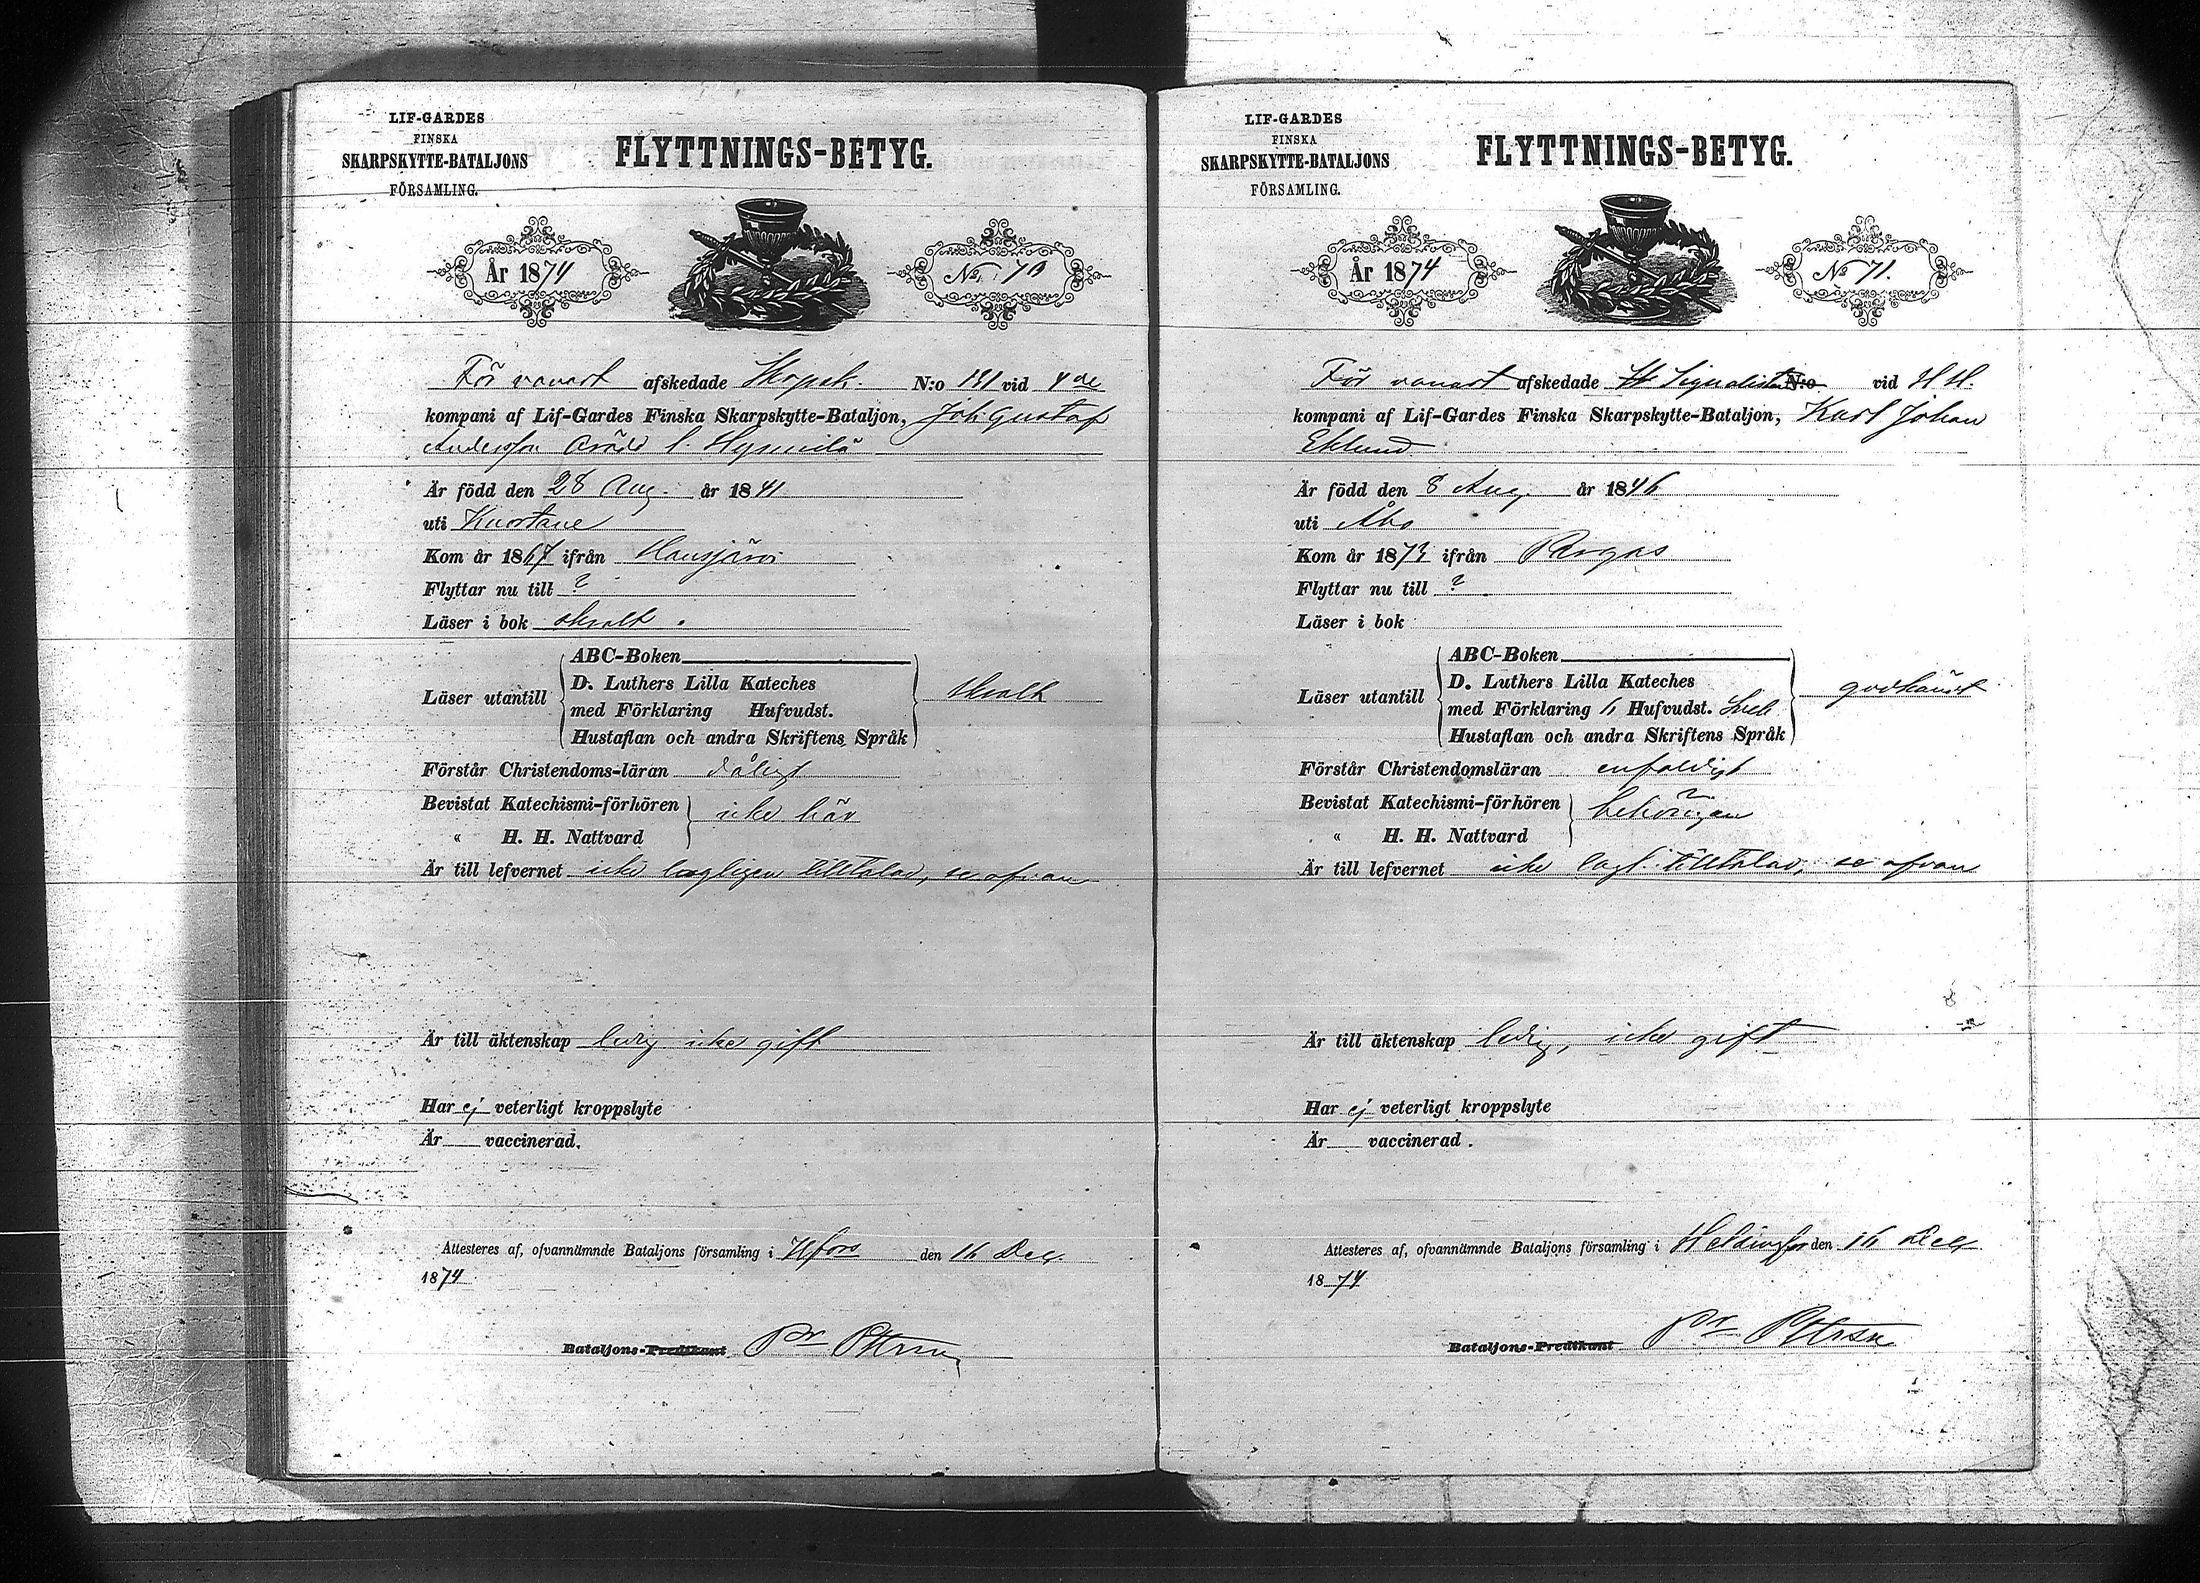 LIF-GARDES
FINSKA
SKARPSKYTTE-BATALJONS
FÖRSAMLING.
FLYTTNINGS-BETYG.
År 1874
No. 70
För vanart afskedade Skpsk. N:o 131 vid 4de
kompani af Lif-Gardes Finska Skarpskytte-Bataljon, Joh Gustaf
Andersson
Är född den 28 Aug. år 1841
uti Kuortane
Kom år 1867 ifrån Hausjärvi
Flyttar nu till ?
Läser i bok svalt
ABC-Boken
Läser utantill D. Luthers Lilla Kateches
med Förklaring Hufvudst. svalt
Hustaflan och andra Skriftens Språk
Förstår Christendoms-läran dåligt
Bevistat Katechismi-förhören icke här
« H. H. Nattvard
Är till lefvernet icke lagligen tilltalad, se ofvan
Är till äktenskap ledig icke gift
Har ej veterligt kroppslyte
Är vaccinerad.
Attesteres af, ofvannämnde Bataljons församling i Hfors den 16 Dec.
1874
Bataljons-Predikant
LIF-GARDES
FINSKA
SKARPSKYTTE-BATALJONS
FÖRSAMLING.
FLYTTNINGS-BETYG.
År 1874
No 71.
För vanart afskedade Signalisten N:o vid
kompani af Lif-Gardes Finska Skarpskytte-Bataljon, Karl Johan
Eklund
Är född den 8 Aug. år 1846
uti Åbo
Kom år 1873 ifrån Pargas
Flyttar nu till ?
Läser i bok
ABC-Boken
Läser utantill D. Luthers Lilla Kateches
med Förklaring Hufvudst. godkändt
Hustaflan och andra Skriftens Språk
Förstår Christendomsläran enfaldigt
Bevistat Katechismi-förhören behörigen
« H. H. Nattvard
Är till lefvernet icke lagl. tilltalad, se ofvan
Är till äktenskap ledig, icke gift
Har ej veterligt kroppslyte
Är vaccinerad.
Attesteres af, ofvannämnde Bataljons församling i Helsingfors den 16 Dec.
1874
Bataljons-Predikant